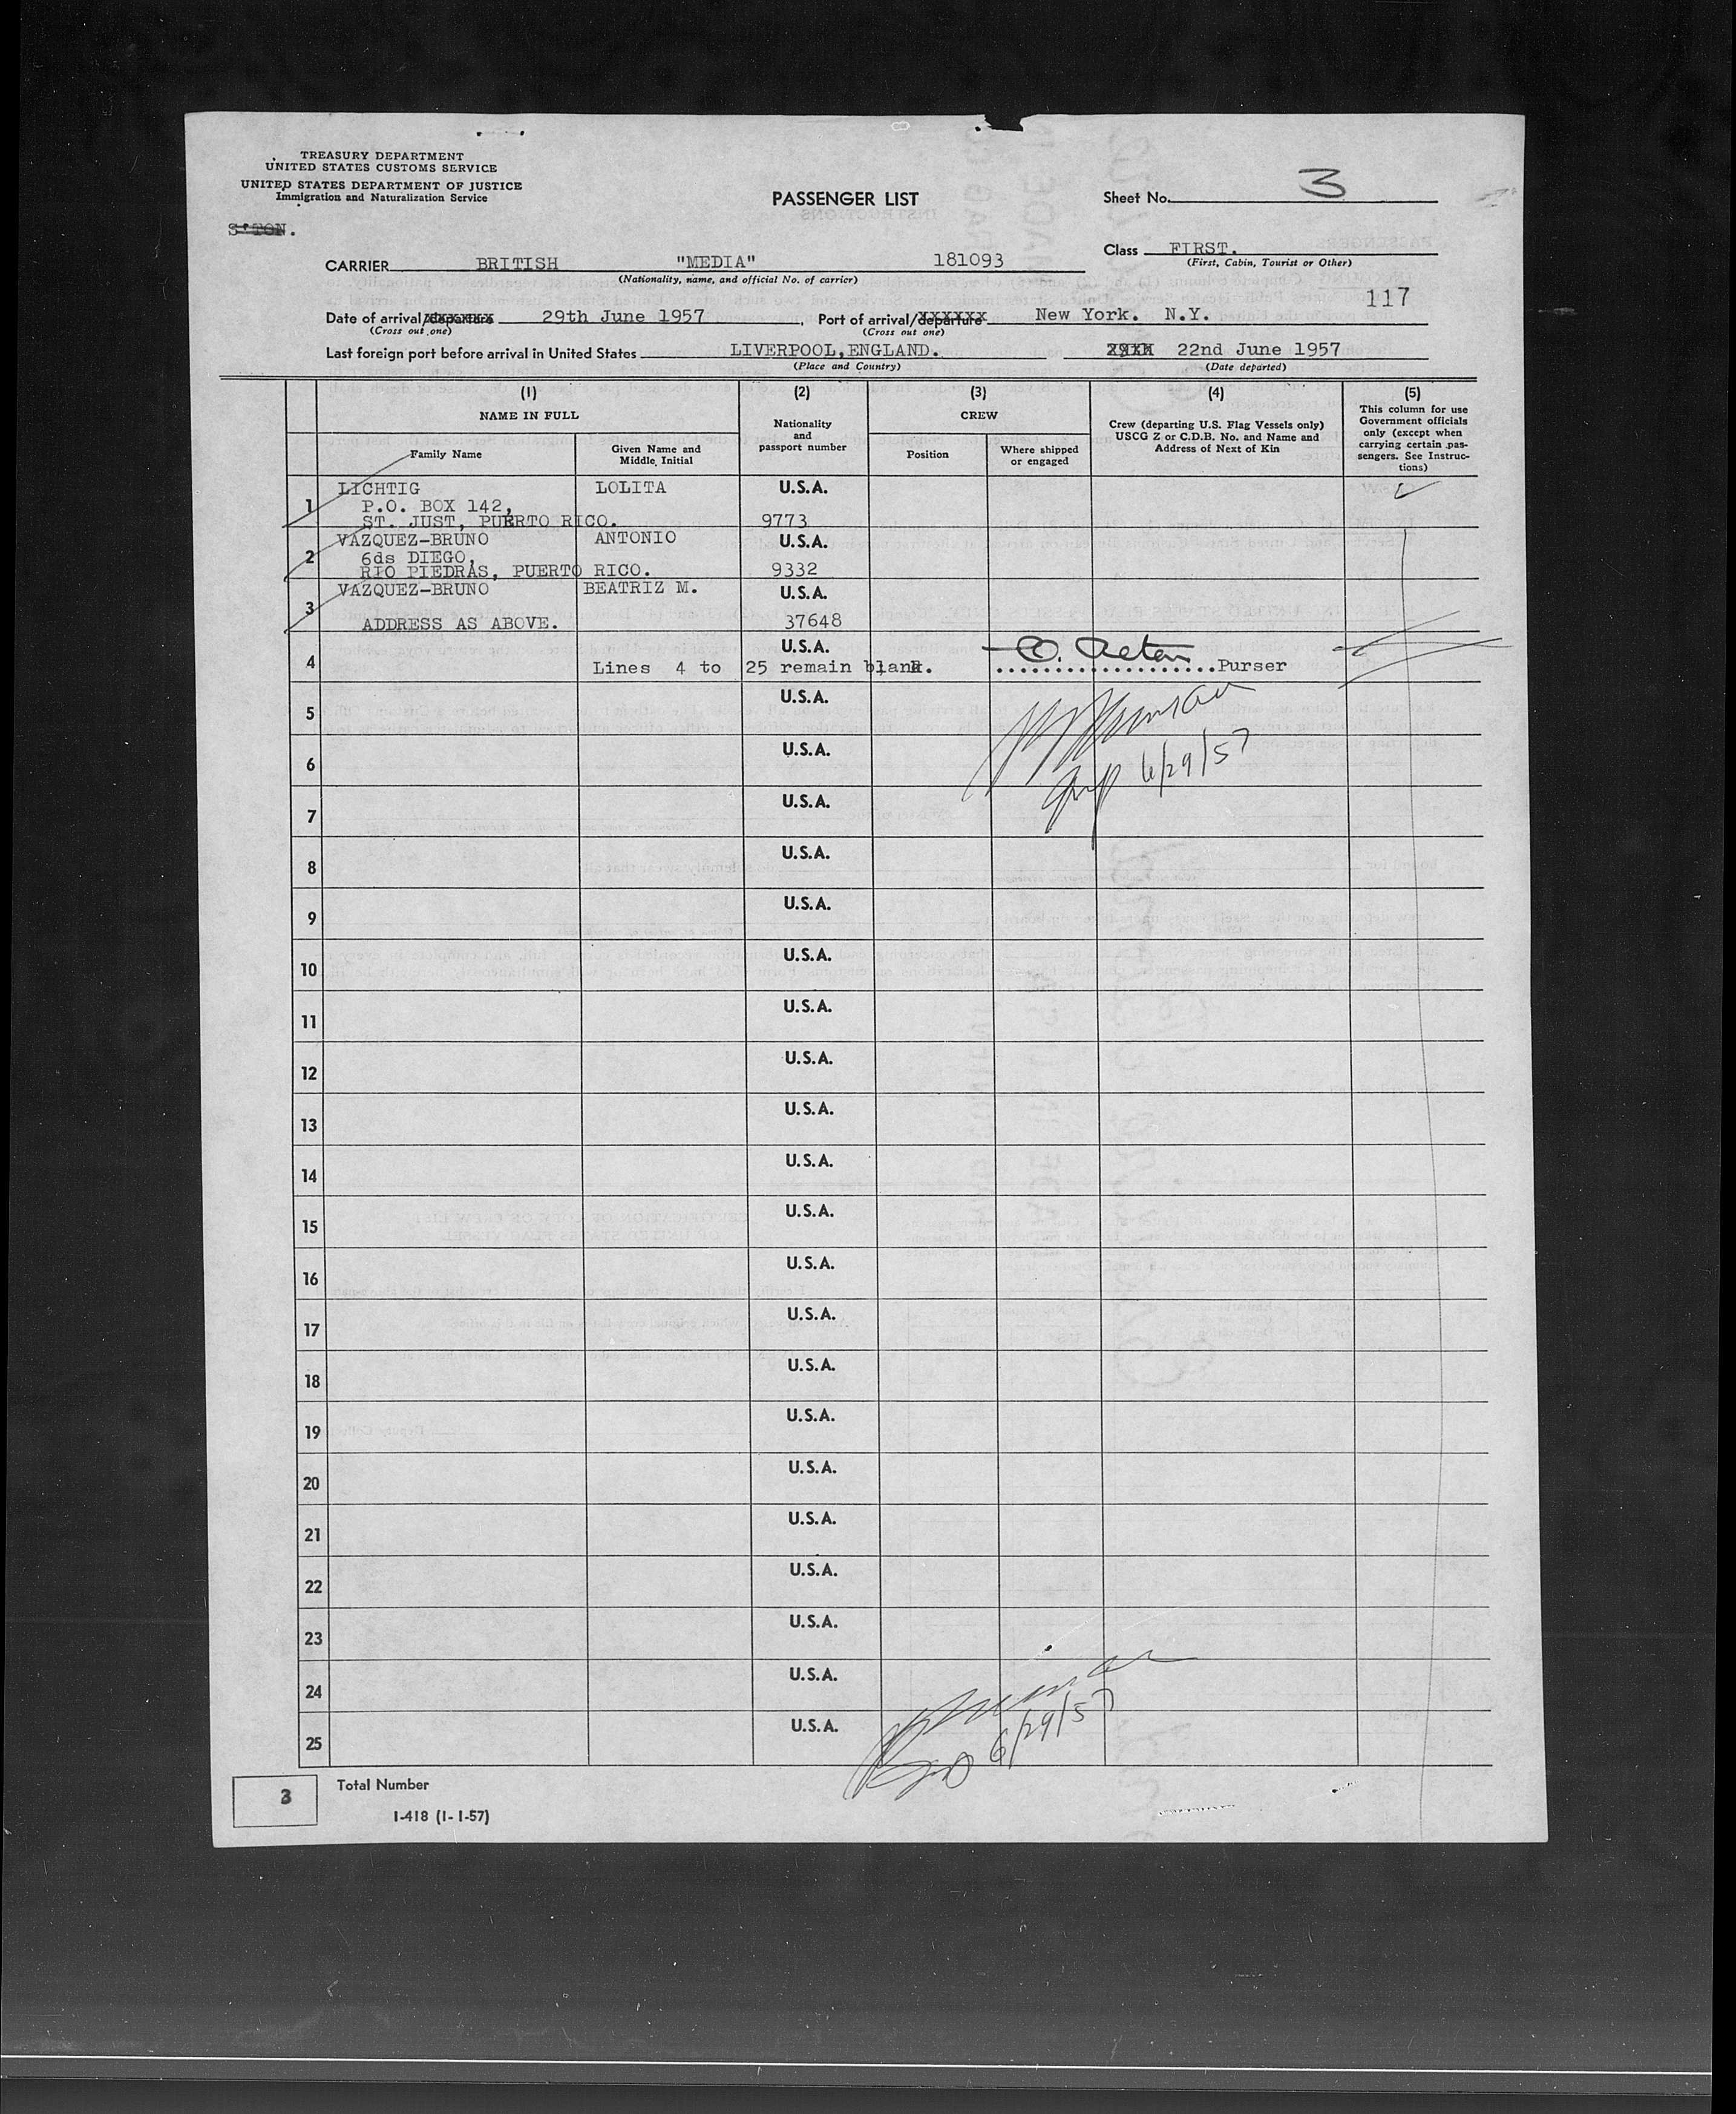 TREASURY DEPARTMENT
UNITED STATES CUSTOMS SERVICE
UNITED STATES DEPARTMENT OF JUSTICE
Immigration and Naturalization Service
S'TON.
PASSENGER LIST
Sheet No. 3
Class FIRST.
(First, Cabin, Tourist or Other)
CARRIER BRITISH "MEDIA" 181093
(Nationality, name, and official No. of carrier)
117
Date of arrival/departure 29th June 1957, Port of arrival/departure New York. N.Y.
(Cross out one) (Cross out one)
Last foreign port before arrival in United States LIVERPOOL,ENGLAND. 22nd June 1957
(Place and Country) (Date departed)
(1) (2) (3) (4) (5)
NAME IN FULL
Family Name
Given Name and
Middle Initial
Nationality
and
passport number
CREW
Position
Where shipped
or engaged
Crew (departing U.S. Flag Vessels only)
USCG Z or C.D.B. No. and Name and
Address of Next of Kin
This column for use
Government officials
only (except when
carrying certain pas-
sengers. See Instruc-
tions)
1 LICHTIG LOLITA U.S.A.
P.O. BOX 142,
ST. JUST, PUERTO RICO. 9773
2 VAZQUEZ-BRUNO ANTONIO U.S.A.
6ds DIEGO,
RIO PIEDRAS, PUERTO RICO. 9332
3 VAZQUEZ-BRUNO BEATRIZ M. U.S.A.
ADDRESS AS ABOVE. 37648
4 U.S.A.
Lines 4 to 25 remain blank. Purser
5 U.S.A.
6 U.S.A.
6/29/57
7 U.S.A.
8 U.S.A.
9 U.S.A.
10 U.S.A.
11 U.S.A.
12 U.S.A.
13 U.S.A.
14 U.S.A.
15 U.S.A.
16 U.S.A.
17 U.S.A.
18 U.S.A.
19 U.S.A.
20 U.S.A.
21 U.S.A.
22 U.S.A.
23 U.S.A.
24 U.S.A.
25 U.S.A.
6/29/57
3 Total Number
I-418 (1-1-57)